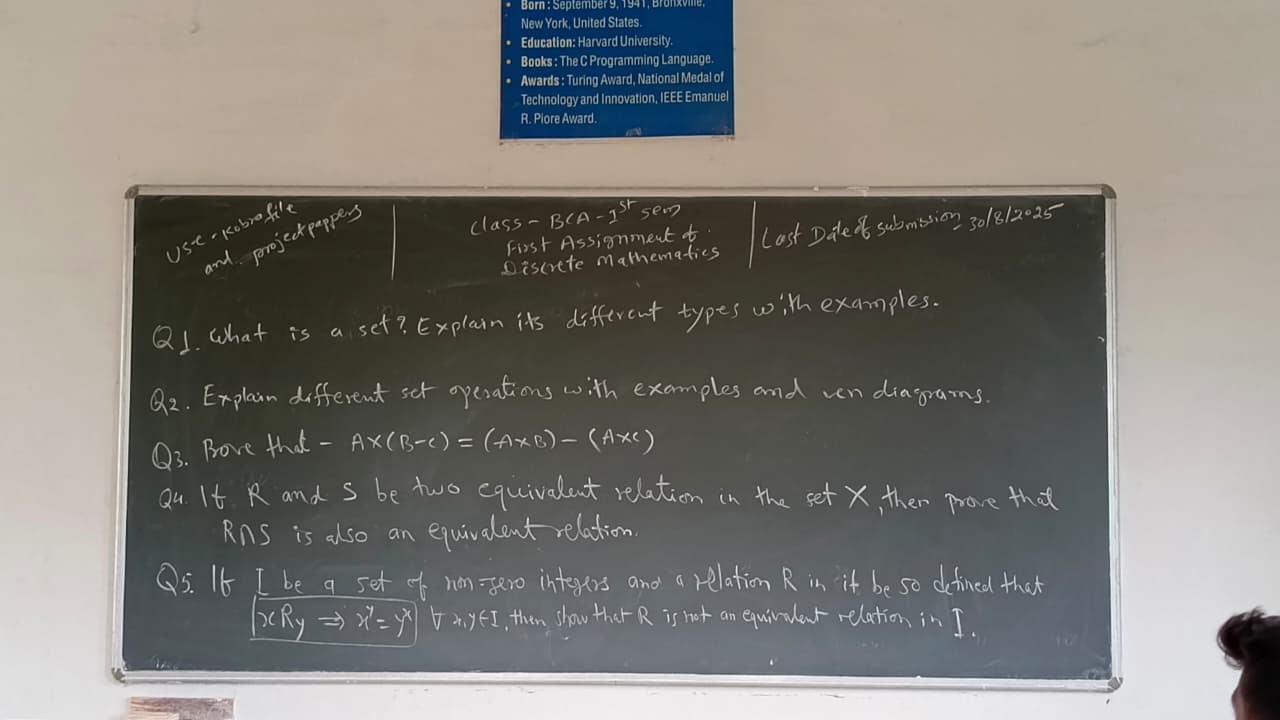 • Born: September 9, 1941, Bronxville,
New York, United States.
• Education: Harvard University.
• Books: The C Programming Language.
• Awards: Turing Award, National Medal of
Technology and Innovation, IEEE Emanuel
R. Piore Award.
Use - kobra file
and project pappers
Class - BCA - 1st sem
First Assignment of
Discrete Mathematics
Last Date of submission = 30/8/2025
Q1. What is a set? Explain its different types with examples.
Q2. Explain different set operations with examples and ven diagrams.
Q3. Prove that - A×(B-C) = (A×B) - (A×C)
Q4. If R and S be two equivalent relation in the set X, then prove that
R∩S is also an equivalent relation.
Q5. If I be a set of non-zero integers and a relation R in it be so defined that
xRy ⇒ x^y = y^x ∀ x,y∈I, then show that R is not an equivalent relation in I.